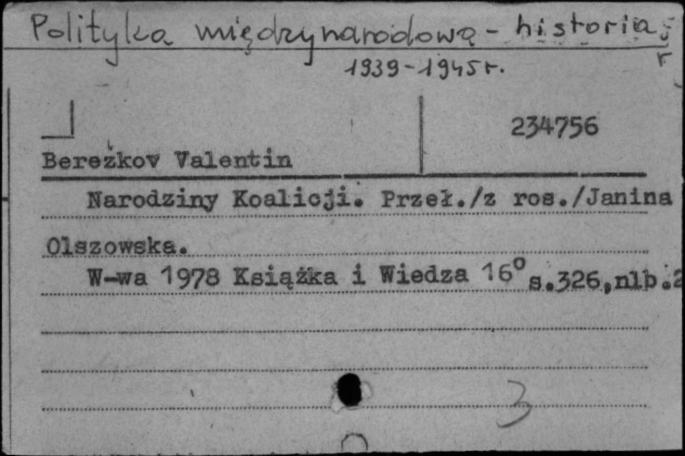 Polityka międzynarodowa - historia,
r
1939-1945 r.
234756
Bereżkov Valentin
Narodziny Koalicji. Przeł./z ros./Janina
Olszowska.
W-wa 1978 Książka i Wiedza 16° s.326,nlb.2
3